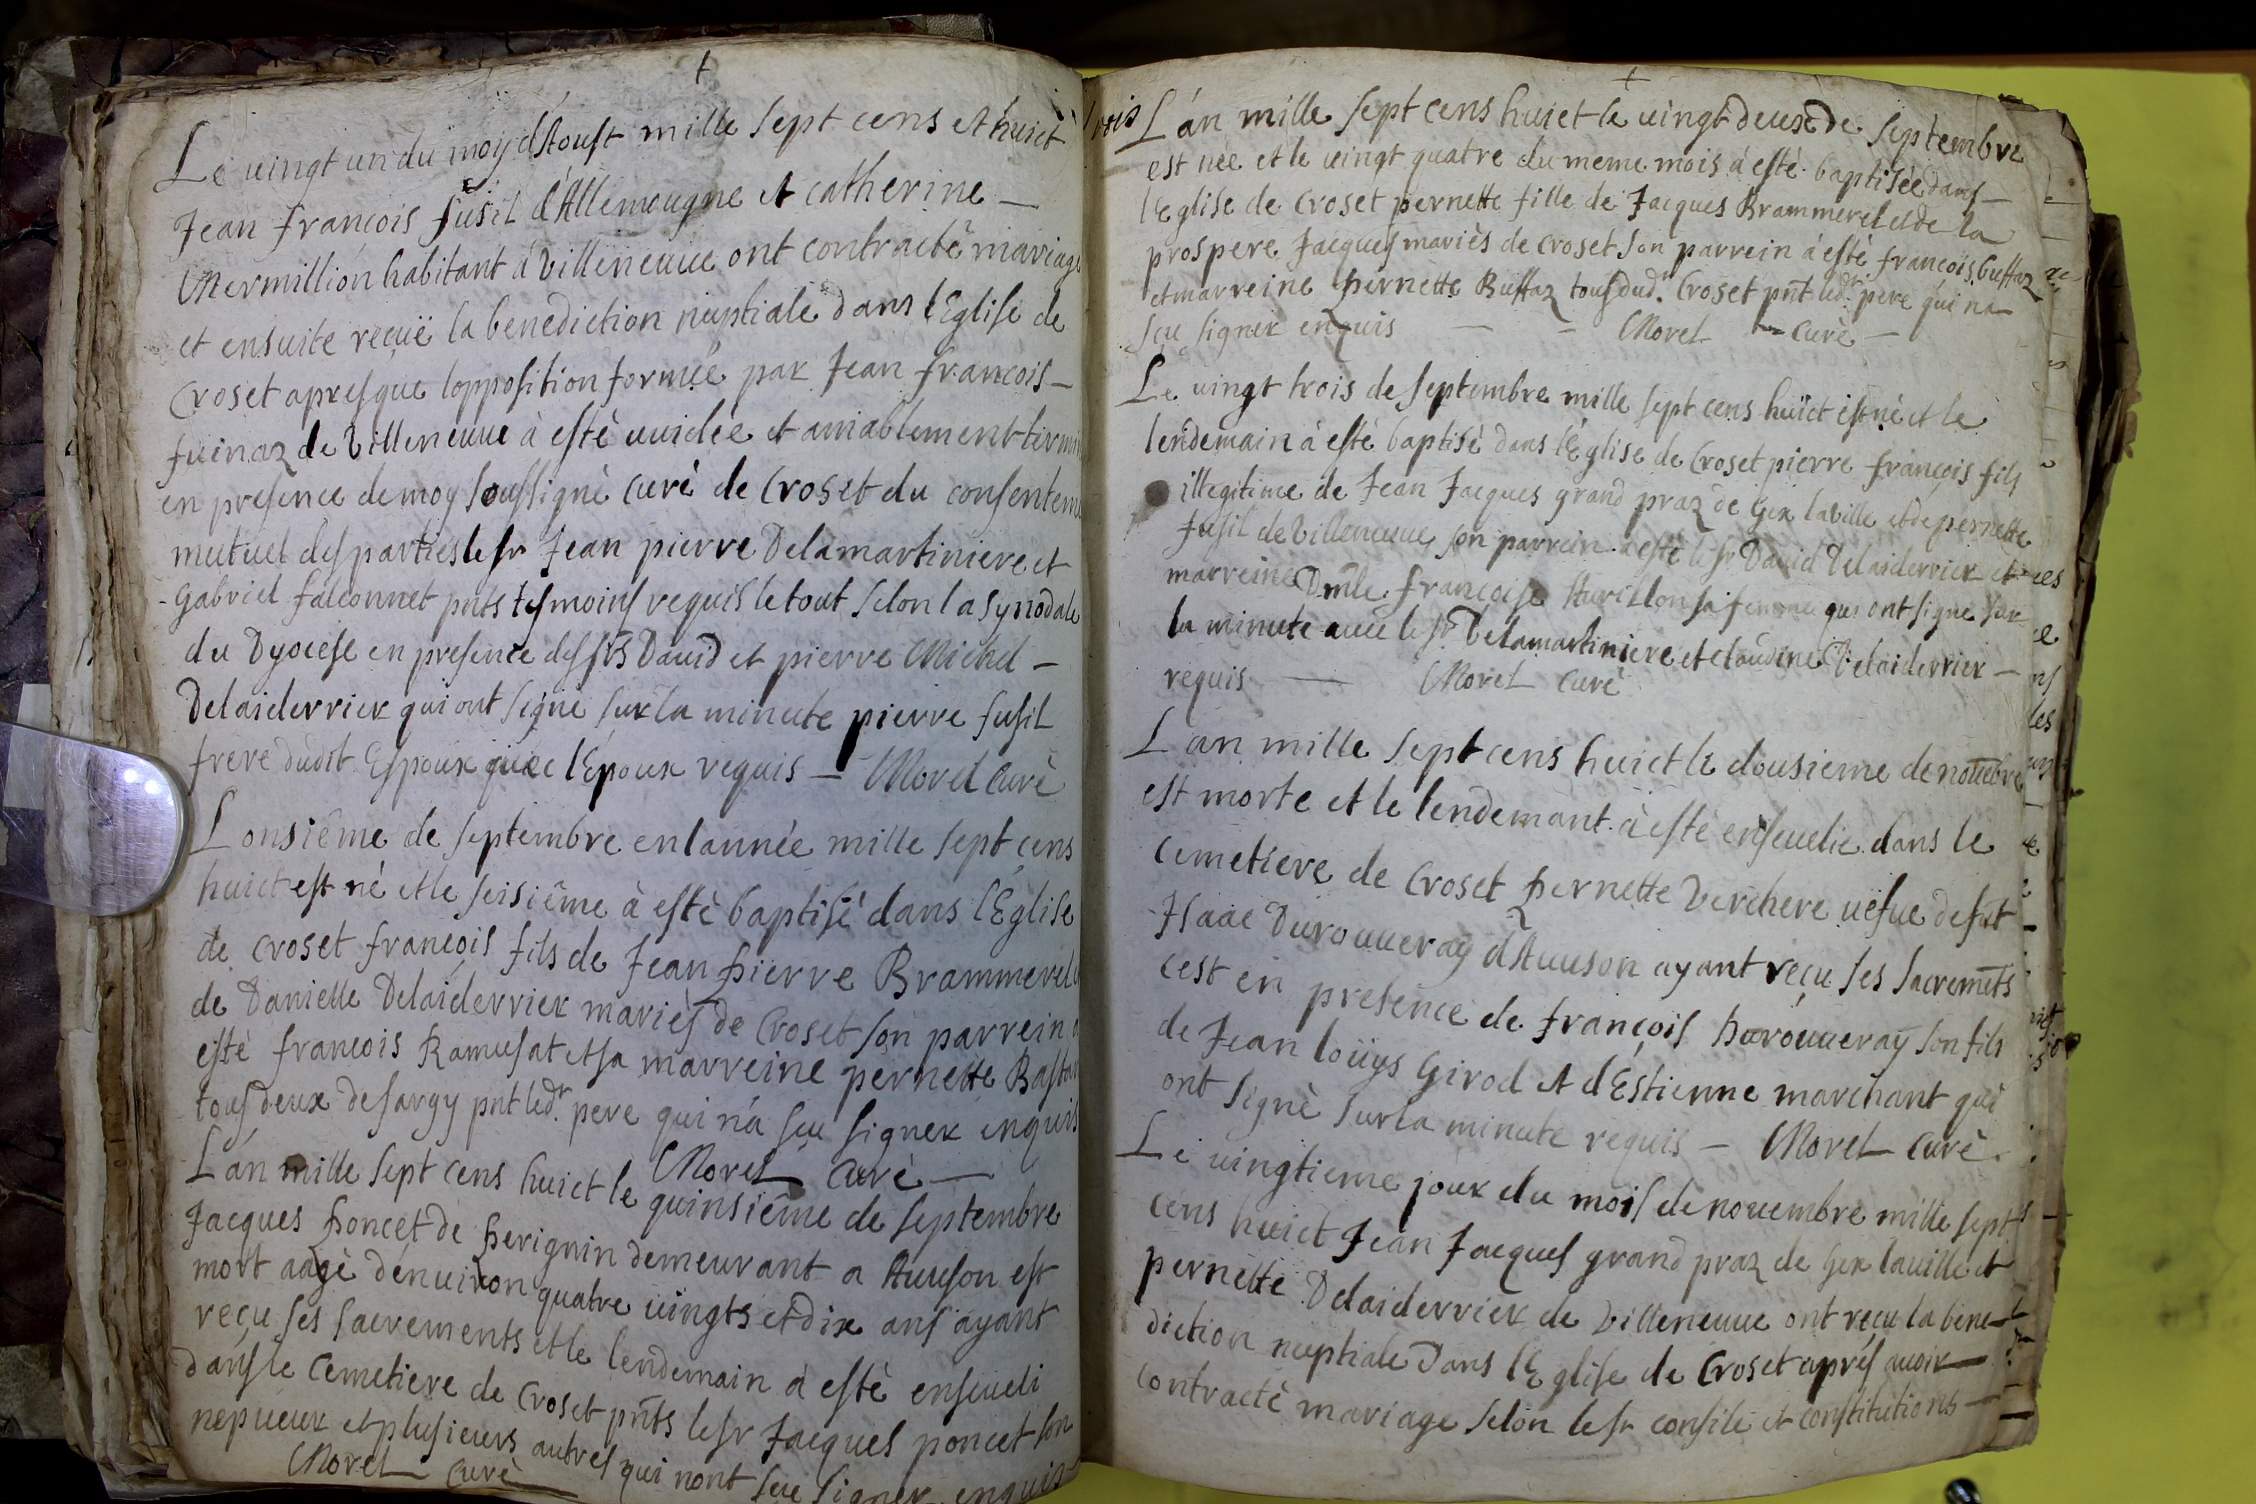 +
Le vingt un du moy d'Aoust mille sept cens et huict
Jean francois fusil d'Allemougne et catherine —
Mermillion habitant à villeneuue ont contractè mariage
et ensuite reçuë la benediction nuptiale dans l'Eglise de
Croset apresque l'opposition formée par Jean francois —
fuinaz de villeneuue à estè uuidée et amiablement
en presence de moy soussignè curè de Croset du
mutuel des parties le sr Jean pierre Delamartiniere et
Gabriel falconnet pnts tesmoins requis le tout selon la synodale
du Dyocese en presence des srs David et pierre Michel —
Delaiderrier qui ont signè sur la minute pierre fusil
frere dudit Espoux l'Epoux requis — Morel Curè
L'onsiême de septembre en l'année mille sept cens
huict est né et le seisiême à estè baptisé dans l'Eglise
de croset françois fils de Jean pierre Brammerel
de Danielle Delaiderrier mariès de Croset son parrein
estè francois Ramusat et sa marreine pernette
tous deux de sargy pnt led.t pere qui n'a sçu signer enquis
Morel Curè —
L'an mille sept cens huict le quinsiême de septembre
Jacques poncet de perignin demeurant a Auuson est
mort aagè d'enuiron quatre uingts et dix ans ayant
reçu ses sacrements et le lendemain à estè enseueli
dans le cemetiere de Croset pnts le sr Jacques poncet son
nepueux et plusieurs autres qui n'ont sçu signer enquis —
Morel curè
+
L'an mille sept cens huict le uingt deux de septembre
est née et le uingt quatre du meme mois à estè baptisèe dans —
l'Eglise de Croset pernette fille de Jacques Brammerel et de la
prospere Jacques mariès de croset son parrein à estè françois buffaz
et marreine pernette Buffaz tous dud.t Croset pnt led.t pere qui n'a
sçu signer enquis — — Morel — curè —
Le uingt trois de septembre mille sept cens huict est nè et le
lendemain à estè baptisè dans l'Eglise de Croset pierre françois fils
illegitime de Jean Jacques grand praz de Gex la ville et de pernette
fusil de villeneuue son parrein à estè le sr David Delaiderrier et
marreine Dmlle françoise sa femme qui ont signe sur
la minute auec le sr Delamartiniere et claudine Delaiderrier —
requis — Morel Curè
L'an mille sept cens huict le dousieme de nouebre
est morte et le lendemant à estè enseuelie dans le
cemetiere de Croset pernette Verchere uefue defut
Isaac Durouueray d'Auuson ayant reçu ses sacremts
cest en presence de françois Durouueray son fils
de Jean loüys Girod et d'Estienne marchant qui
ont signè sur la minute requis — Morel curè.
Le uingtieme jour du mois de nouembre mille sept
cens huict Jean Jacques grand praz de Gex la uille et
pernette Delaiderrier de villeneuue ont reçu la bene-
diction nuptiale Dans l'Eglise de Croset aprés auoir —
contractè mariage selon le st consile et constitutions —